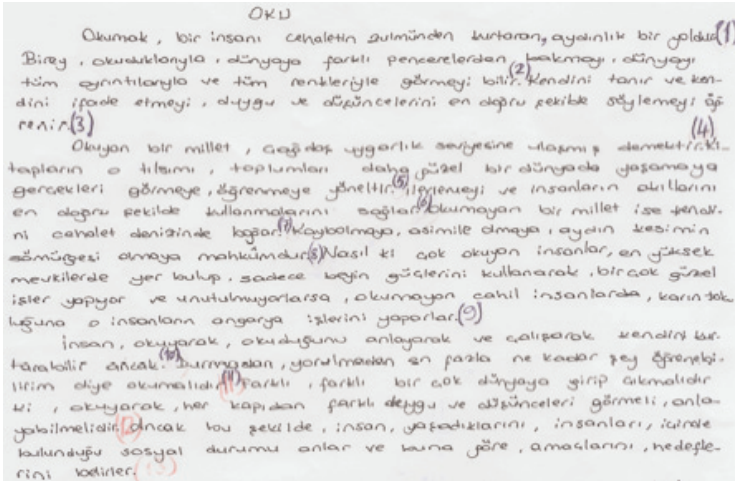 OKU
Okumak, bir insanı cehaletin zulmünden kurtaran, aydınlık bir yoldur.(1)
Birey, okuduklarıyla, dünyaya farklı pencerelerden bakmayı, dünyayı
tüm ayrıntılarıyla ve tüm renkleriyle görmeyi bilir.(2) Kendini tanır ve ken-
dini ifade etmeyi, duygu ve düşüncelerini en doğru şekilde söylemeyi öğ
renir.(3) (4)
Okuyan bir millet, çağdaş uygarlık seviyesine ulaşmış demektir. Ki-
tapların o tılsımı, toplumları daha güzel bir dünyada yaşamaya
gerçekleri görmeye, öğrenmeye yöneltir.(5) İlerlemeyi ve insanların akıllarını
en doğru şekilde kullanmalarını sağlar.(6) Okumayan bir millet ise kendi-
ni cehalet denizinde boğar.(7) Kaybolmaya, asimile olmaya, aydın kesimin
sömürgesi olmaya mahkûmdur.(8) Nasıl ki çok okuyan insanlar, en yüksek
mevkilerde yer bulup, sadece beyin güçlerini kullanarak, birçok güzel
işler yapıyor ve unutulmuyorlarsa, okumayan cahil insanlarda, karın tok
luğuna o insanların angarya işlerini yaparlar.(9)
İnsan, okuyarak, okuduğunu anlayarak ve çalışarak kendini kur-
tarabilir ancak.(10) Durmadan, yorulmadan en fazla ne kadar şey öğrenebi-
lirim diye okumalıdır.(11) Farklı, farklı bir çok dünyaya girip çıkmalıdır
ki, okuyarak, her kapıdan farklı duygu ve düşünceleri görmeli, anla-
yabilmelidir.(12) Ancak bu şekilde, insan, yaşadıklarını, insanları, içinde
bulunduğu sosyal durumu anlar ve buna göre, amaçlarını, hedefle-
rini belirler.(13)